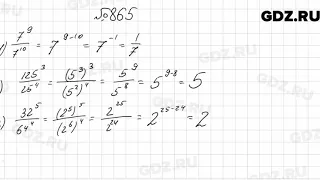 №865
GDZ.RU
) 7⁹/7¹⁰ = 7⁹⁻¹⁰ = 7⁻¹ = 1/7
) 125³/25⁴ = (5³)³/(5²)⁴ = 5⁹/5⁸ = 5⁹⁻⁸ = 5
) 32⁵/64⁴ = (2⁵)⁵/(2⁶)⁴ = 2²⁵/2²⁴ = 2²⁵⁻²⁴ = 2